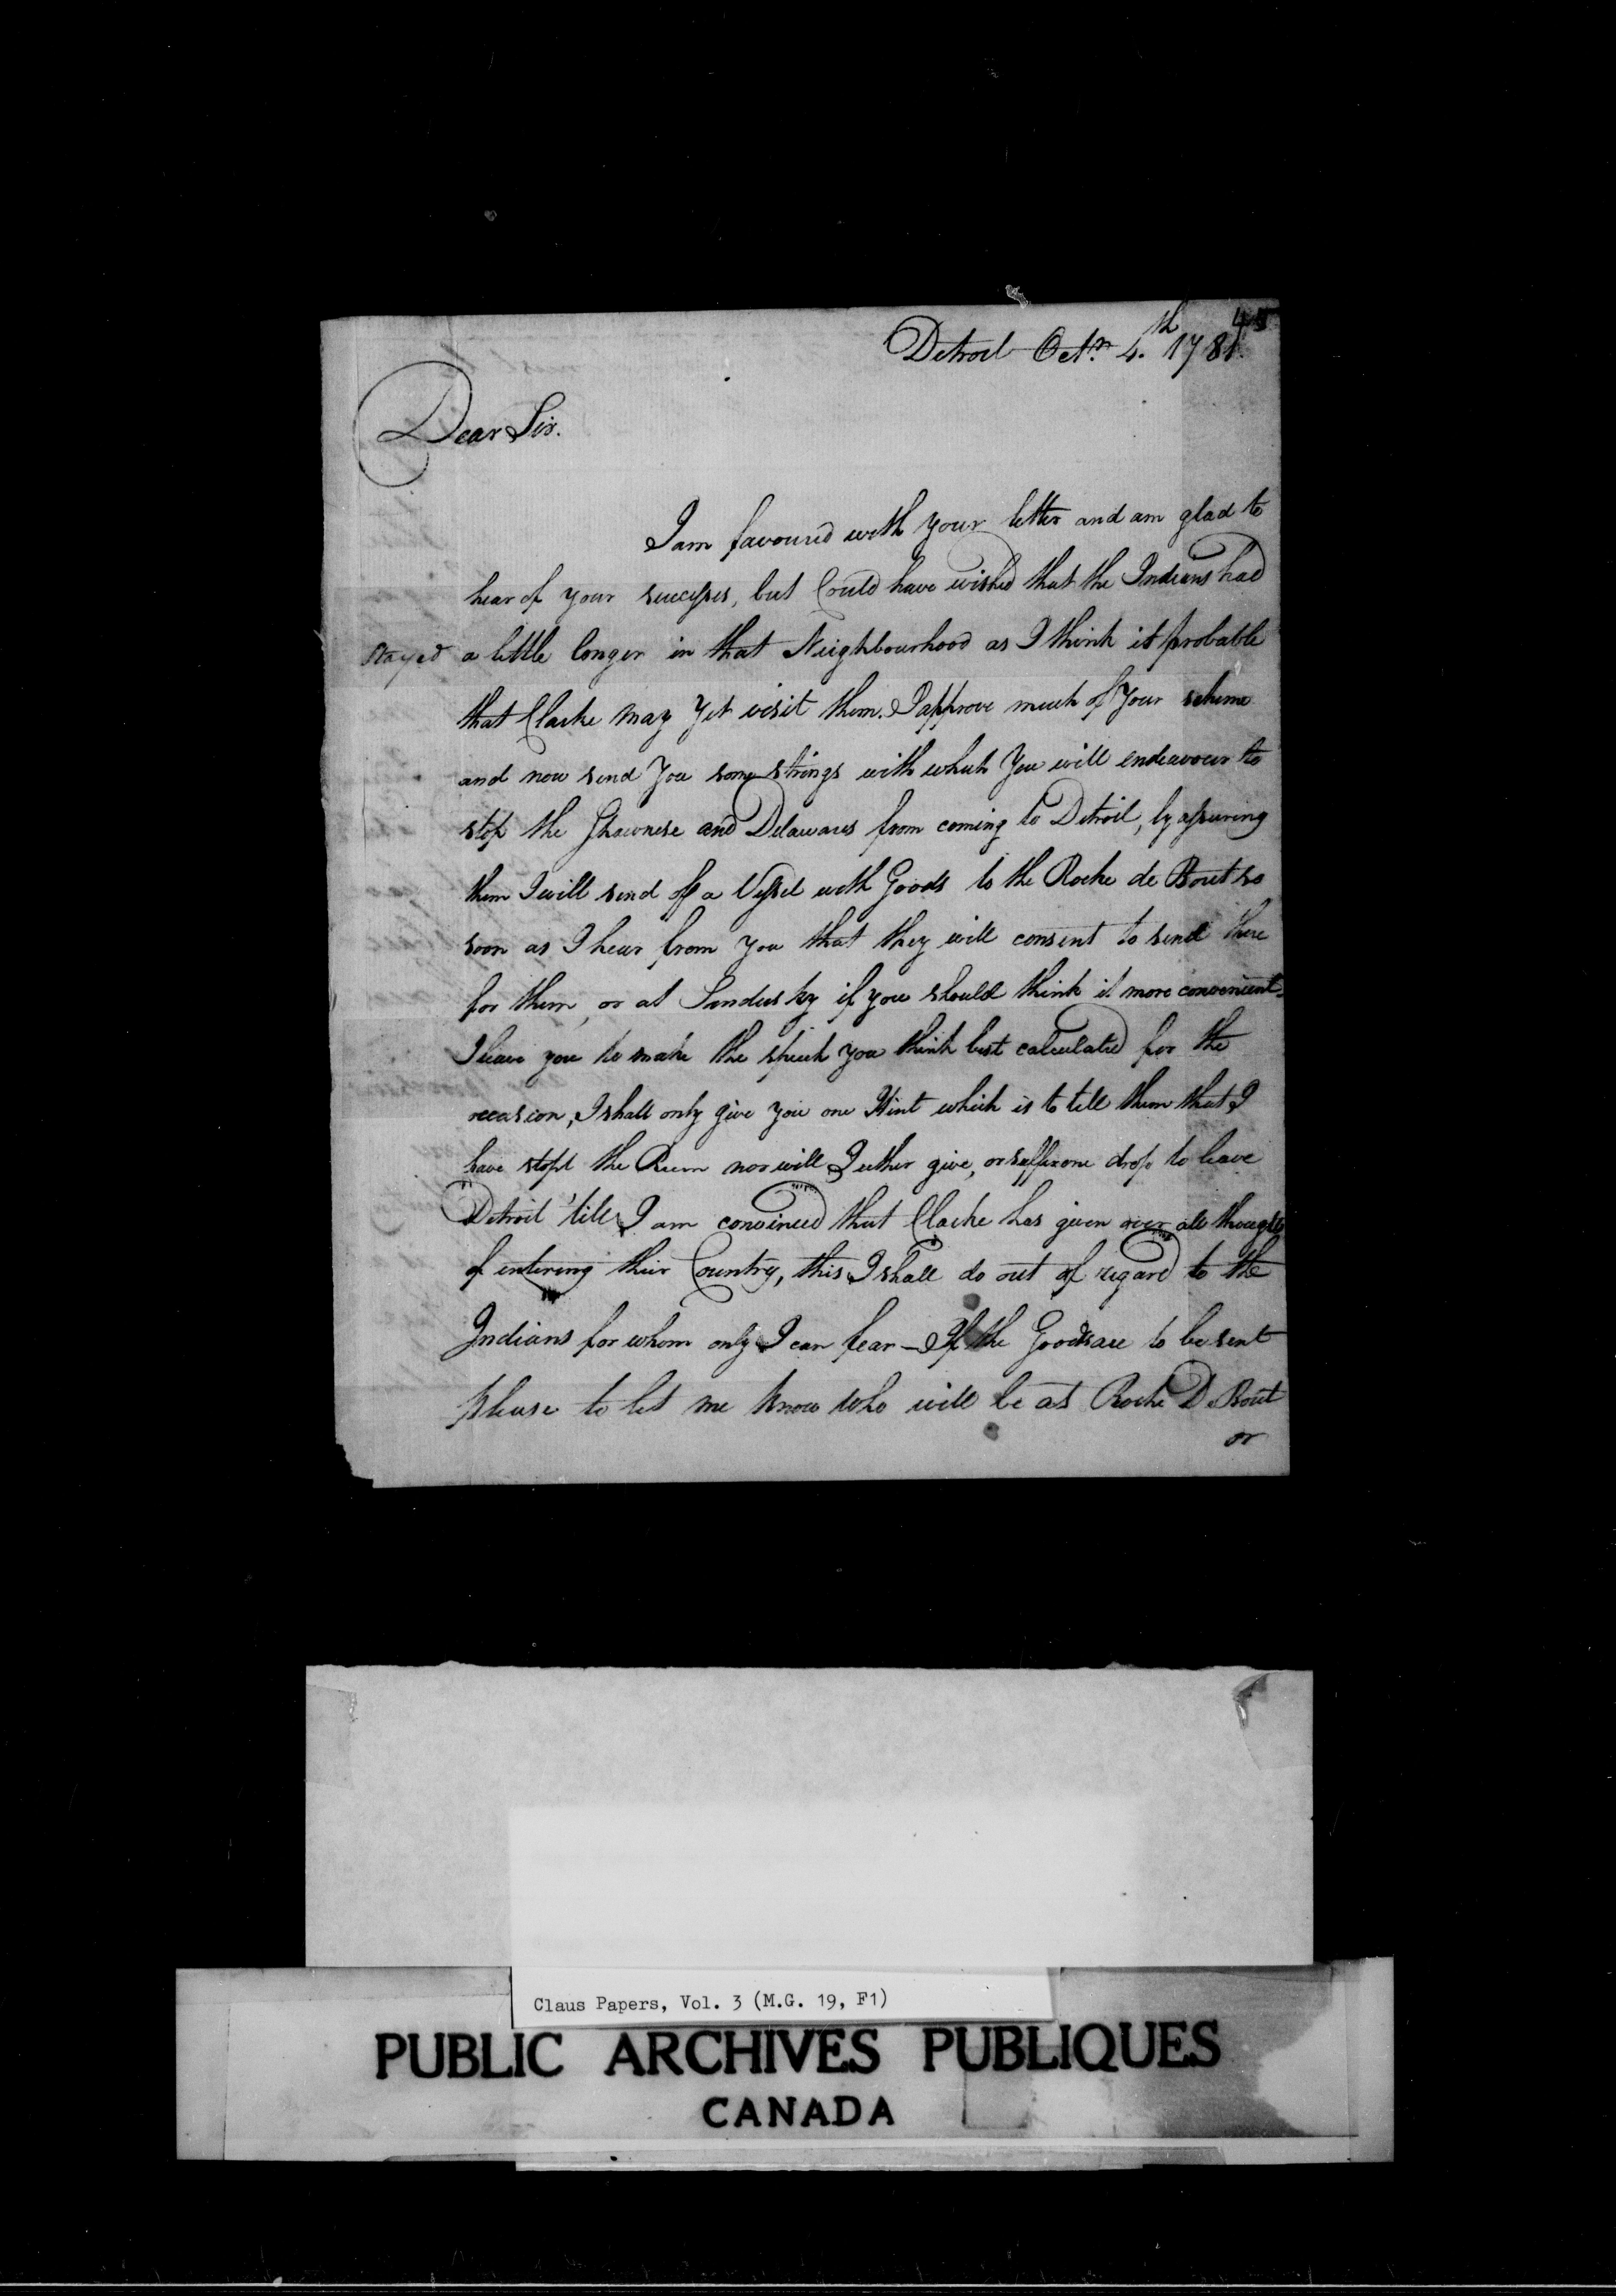 45
Detroit Octr. 4.th 1781.
Dear Sir.
I am favoured with your letter and am glad to
hear of your successes, but Could have wished that the Indians had
stayed a little longer in that Neighbourhood as I think it probable
that Clarke may yet visit them. I approve much of your scheme
and now send you some strings with which you will endeavour to
stop the Shawnese and Delawares from coming to Detroit, by assuring
them I will send off a Vessel with Goods to the Roche de Bout so
soon as I hear from you that they will consent to send there
for them, or at Sandusky if you should think it more convenient.
I leave you to make the speech you think best calculated for the
occasion, I shall only give you one Hint which is to tell them that I
have stopt the Rum nor will I either give, or suffer one drop to leave
Detroit 'till I am convinced that Clarke has given over all thoughts
of entering their Country, this I shall do out of regard to the
Indians for whom only I can fear – If the Goods are to be sent
please to let me know who will be at Roche D. Bout
or
Claus Papers, Vol. 3 (M.G. 19, F1)
PUBLIC ARCHIVES PUBLIQUES
CANADA